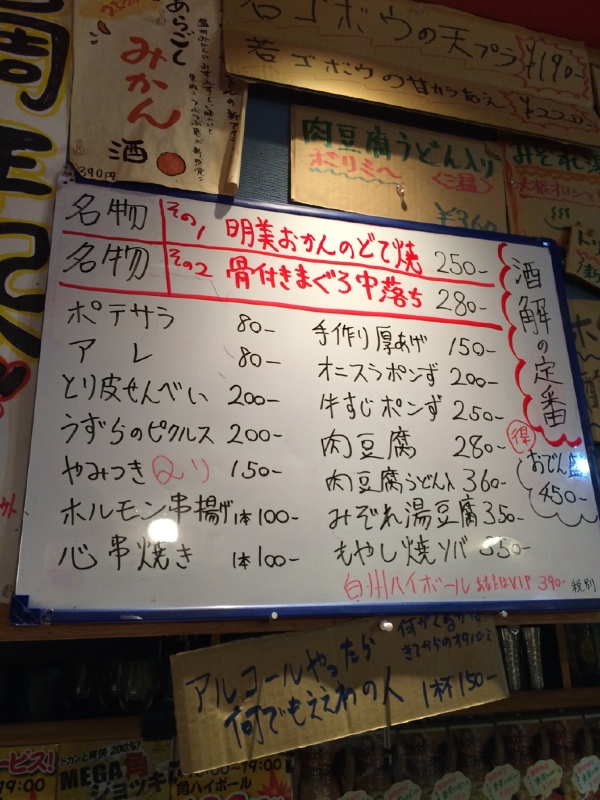 あらごし
みかん
酒
390円
若ゴボウの天プラ ¥190-
若ゴボウの甘からあえ ¥220-
肉豆腐うどん入り
¥360
名物 その1 明美おかんのどて焼 250-
名物 その2 骨付きまぐろ中落ち 280-
ポテサラ 80-
アレ 80-
とり皮せんべい 200-
うずらのピクルス 200-
やみつき 150-
ホルモン串揚げ 1本100-
心串焼き 1本100-
手作り厚あげ 150-
オニスラポンず 200-
牛すじポンず 250-
肉豆腐 280-
肉豆腐うどん入 360-
みぞれ湯豆腐 350-
もやし焼ソバ 350-
白州ハイボール 390- 税別
酒解の定番
得
おでん盛
450-
アルコールやったら
何でもええわの人 1杯150-
ドカンと爽快 200%!
MEGA角
ジョッキ
角ハイボール